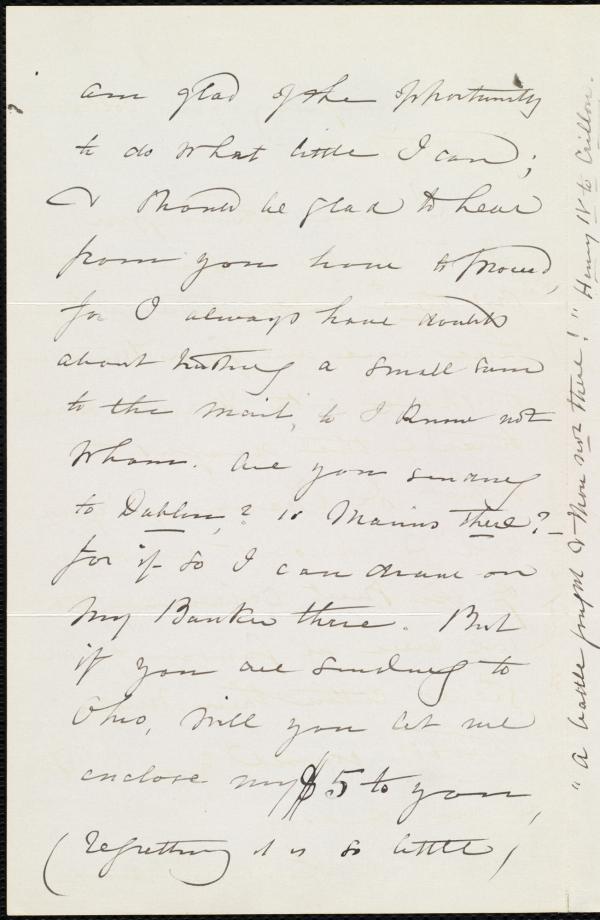 am glad of the opportunity
to do what little I can;
& should be glad to hear
from you how to proceed,
for I always have doubts
about trusting a small sum
to the mail, to I know not
whom. Are you sending
to Dublin,? is Marius there?–
for if so I can draw on
my Banker there. But
if you are sending to
Ohio, will you let me
enclose my $5 to you,
(regretting it is so little,
"A battle fought & thou not there!" Henry IV to Crillon.